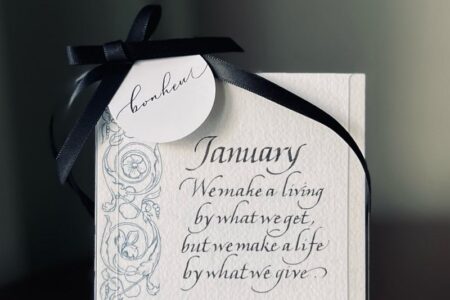 bonheur
January
We make a living
by what we get,
but we make a life
by what we give.